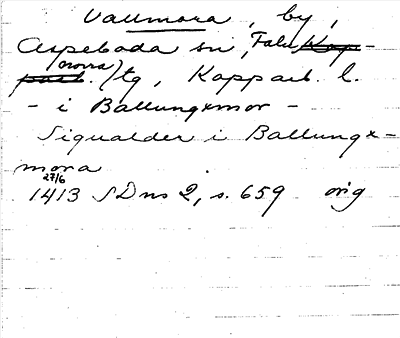 Vallmora, by,
Aspeboda sn, Falu Kop-
parb. (norra) tg, Kopparb. l.
- i Ballungxmor -
Sigualder i Ballungx-
mora
27/6
1413 SDns 2, s. 659 orig